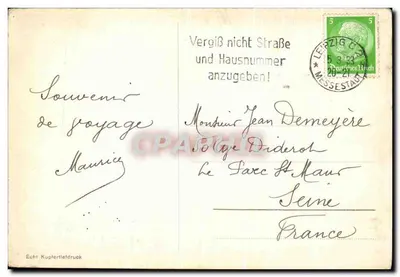 Vergiß nicht Straße
und Hausnummer
anzugeben!
5 5
Deutsches Reich
LEIPZIG C2
MESSESTADT
Souvenir
de voyage
Maurice
Monsieur Jean Demeyère
Diderot
Le Parc St Maur
Seine
France
CPARAMA
Echt Kupfertiefdruck